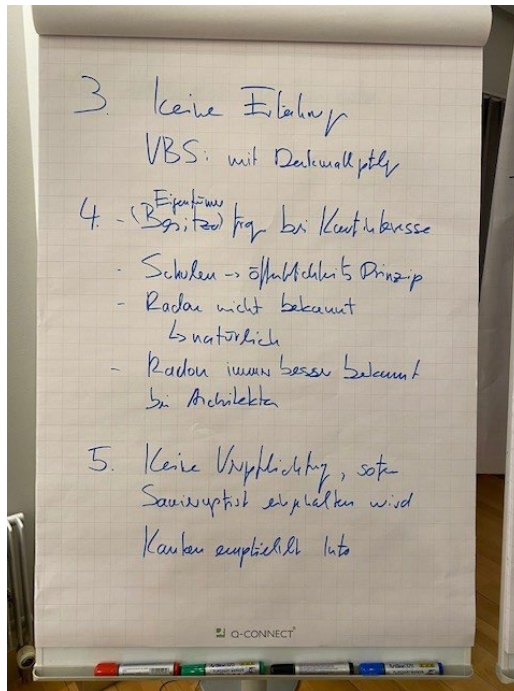 3. Keine Erfahrung
VBS: mit Denkmalpflege
Eigentümer
4. - (Besitzer) frag bei Kaufinteresse
- Schulen → öffentlichkeits Prinzip
- Radon nicht bekannt
↳ natürlich
- Radon immer besser bekannt
bei Architekten
5. Keine Verpflichtung, sofern
Sanierungsfrist eingehalten wird
Kanton empfiehlt Info
Q-CONNECT